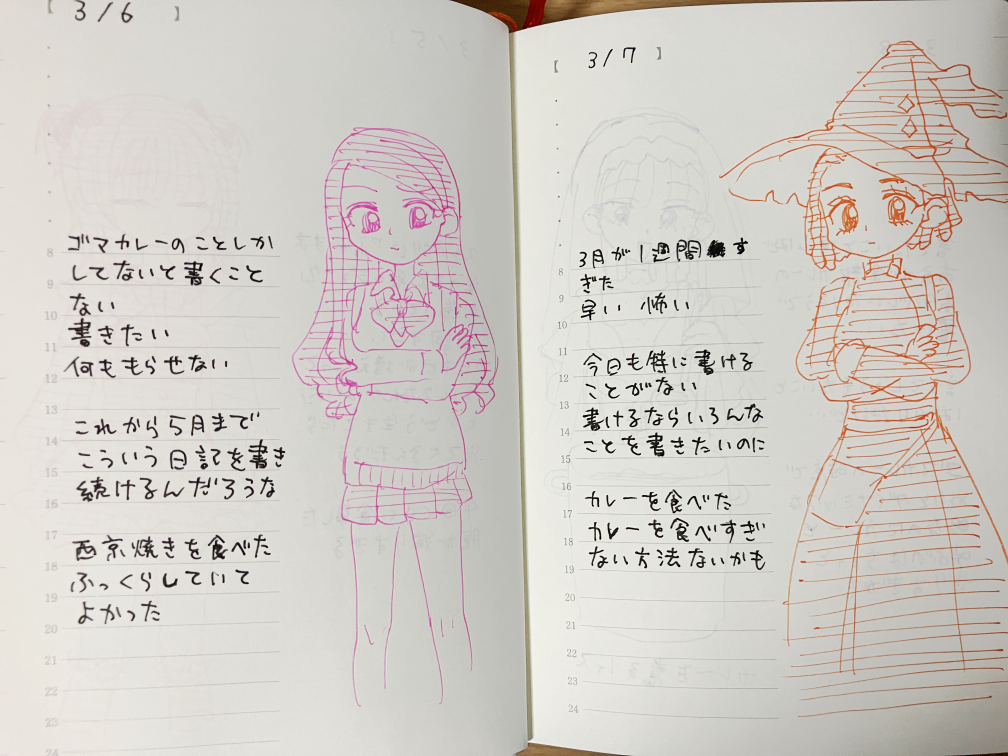 [ 3/6 ]
8
9
10
11
12
13
14
15
16
17
18
19
20
21
22
23
24
ゴマカレーのことしか
してないと書くこと
ない
書きたい
何ももらせない
これから5月まで
こういう日記を書き
続けるんだろうな
西京焼きを食べた
ふっくらしていて
よかった
[ 3/7
8
9
10
11
12
13
14
15
16
17
18
19
20
21
22
23
24
3月が1週間す
ぎた
早い 怖い
今日も特に書ける
ことがない
書けるならいろんな
ことを書きたいのに
カレーを食べた
カレーを食べすぎ
ない方法ないかも